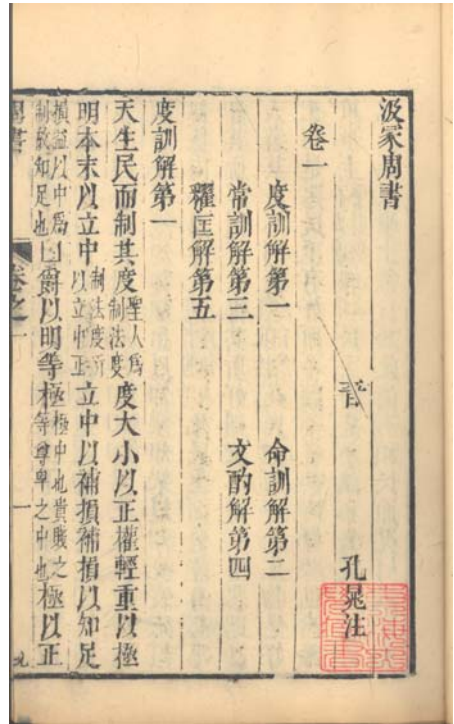 汲冢周書
晉 孔晁注
卷一
度訓解第一 命訓解第二
常訓解第三 文酌解第四
糴匡解第五
度訓解第一
天生民而制其度聖人爲制法度度大小以正權輕重以極
明本末以立中制法度所以立中正立中以補損補損以知足
損益以中爲制故知足也爵以明等極極中也貴賤之等尊卑之中也極以正
卷之一
一